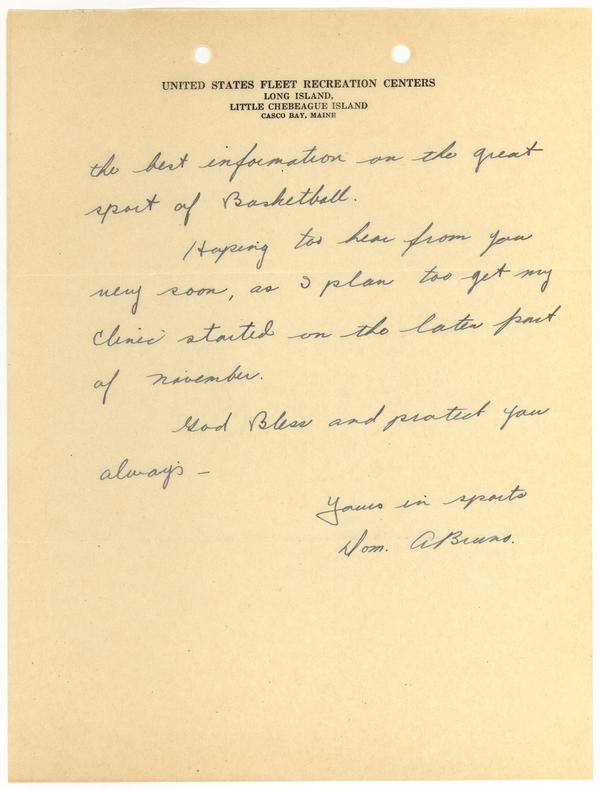 UNITED STATES FLEET RECREATION CENTERS
LONG ISLAND,
LITTLE CHEBEAGUE ISLAND
CASCO BAY, MAINE
the best information on the great
sport of Basketball.
Hoping too hear from you
very soon, as I plan too get my
Clinic started on the later part
of November.
God Bless and protect you
always —
Yours in sports
Dom. A Bruno.